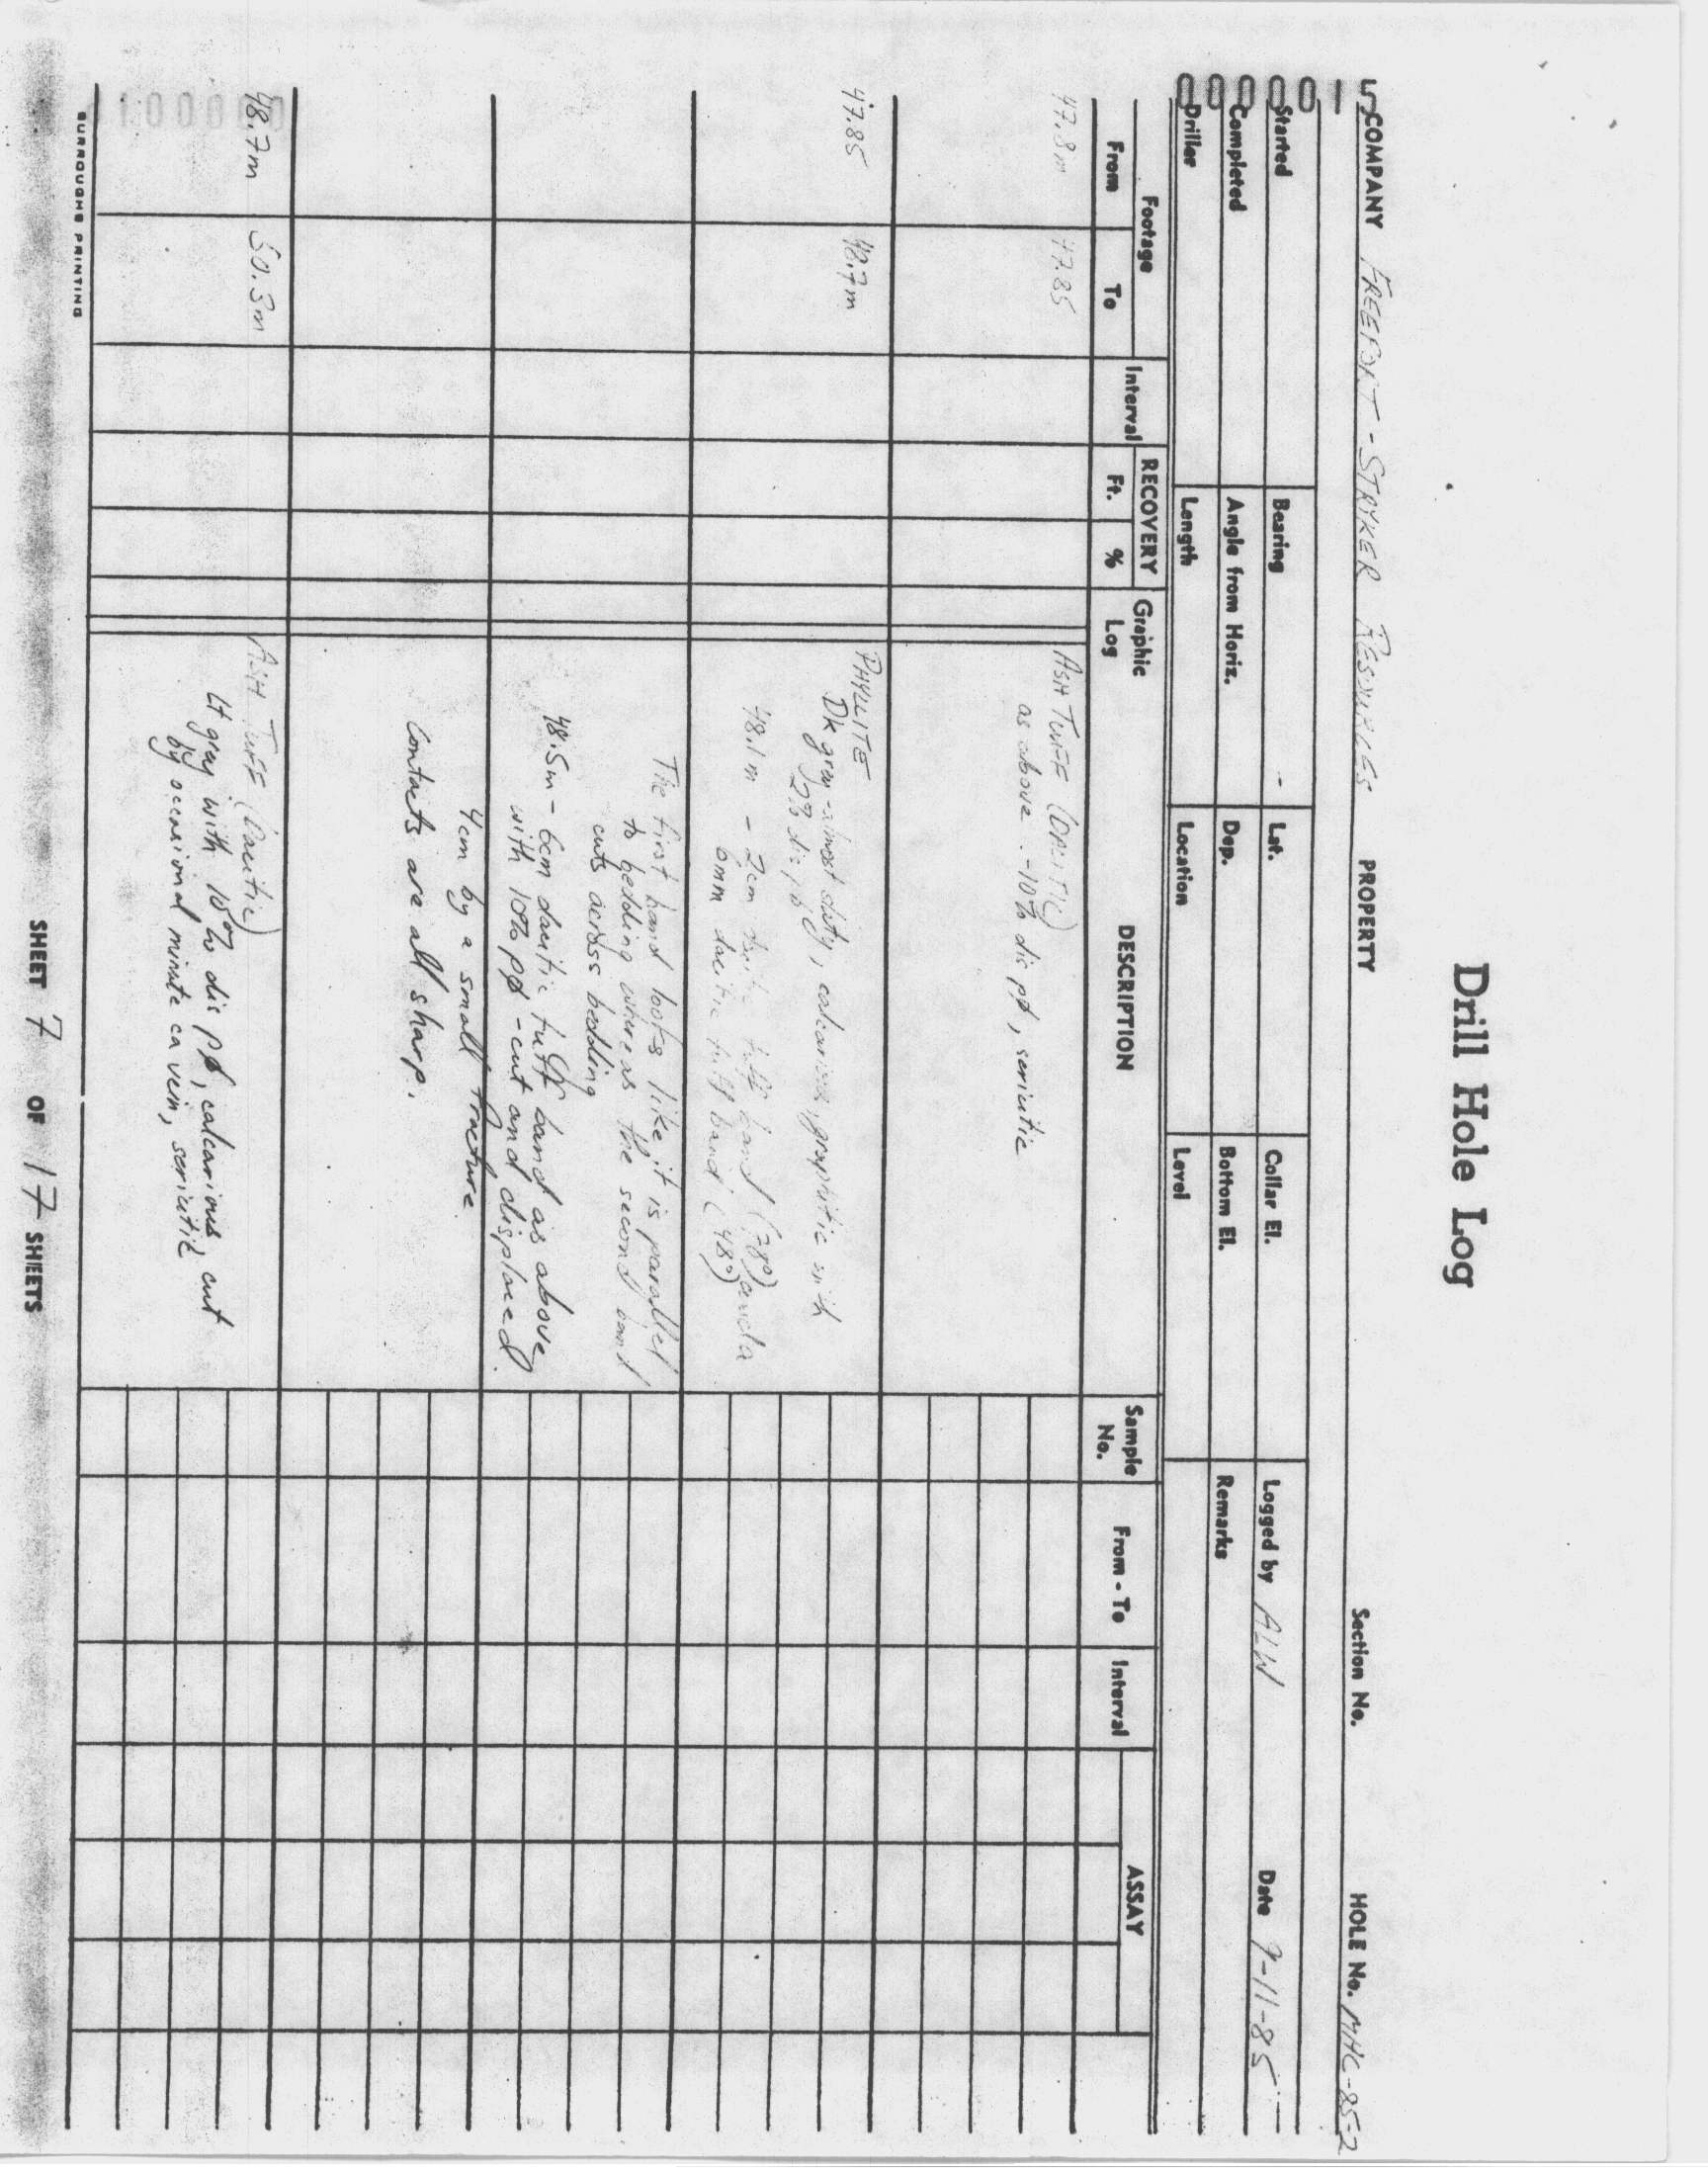 Drill Hole Log
COMPANY FREEPORT - STRYKER RESOURCES PROPERTY Section No. HOLE No. MHC-85-2
Started Bearing - Lat. Collar El. Logged by ALW Date 9-11-85
Completed Angle from Horiz. Dep. Bottom El. Remarks
Driller Length Location Level
Footage RECOVERY Graphic Log DESCRIPTION Sample No. From - To Interval ASSAY
From To Interval Ft. %
47.8m 47.85 ASH TUFF (DACITIC)
as above. -10% dis pø, sericitic
47.85 48.7m PHYLLITE
Dk gray-almost dusty, calcarious, graphitic with
2% dis pø
48.1m - 2cm dacitic tuff band (78°) and a
6mm dacitic tuff band (48°)
The first band looks like it is parallel
to bedding whereas the second band
cuts across bedding
48.5m - 6cm dacitic tuff band as above
with 10% pø - cut and displaced
4cm by a small fracture
Contacts are all sharp.
48.7m 50.3m ASH TUFF (Dacitic)
Lt gray with 10% dis pø, calcarious, cut
by occasional minute ca vein, sericitic
BURROUGHS PRINTING
SHEET 7 OF 17 SHEETS